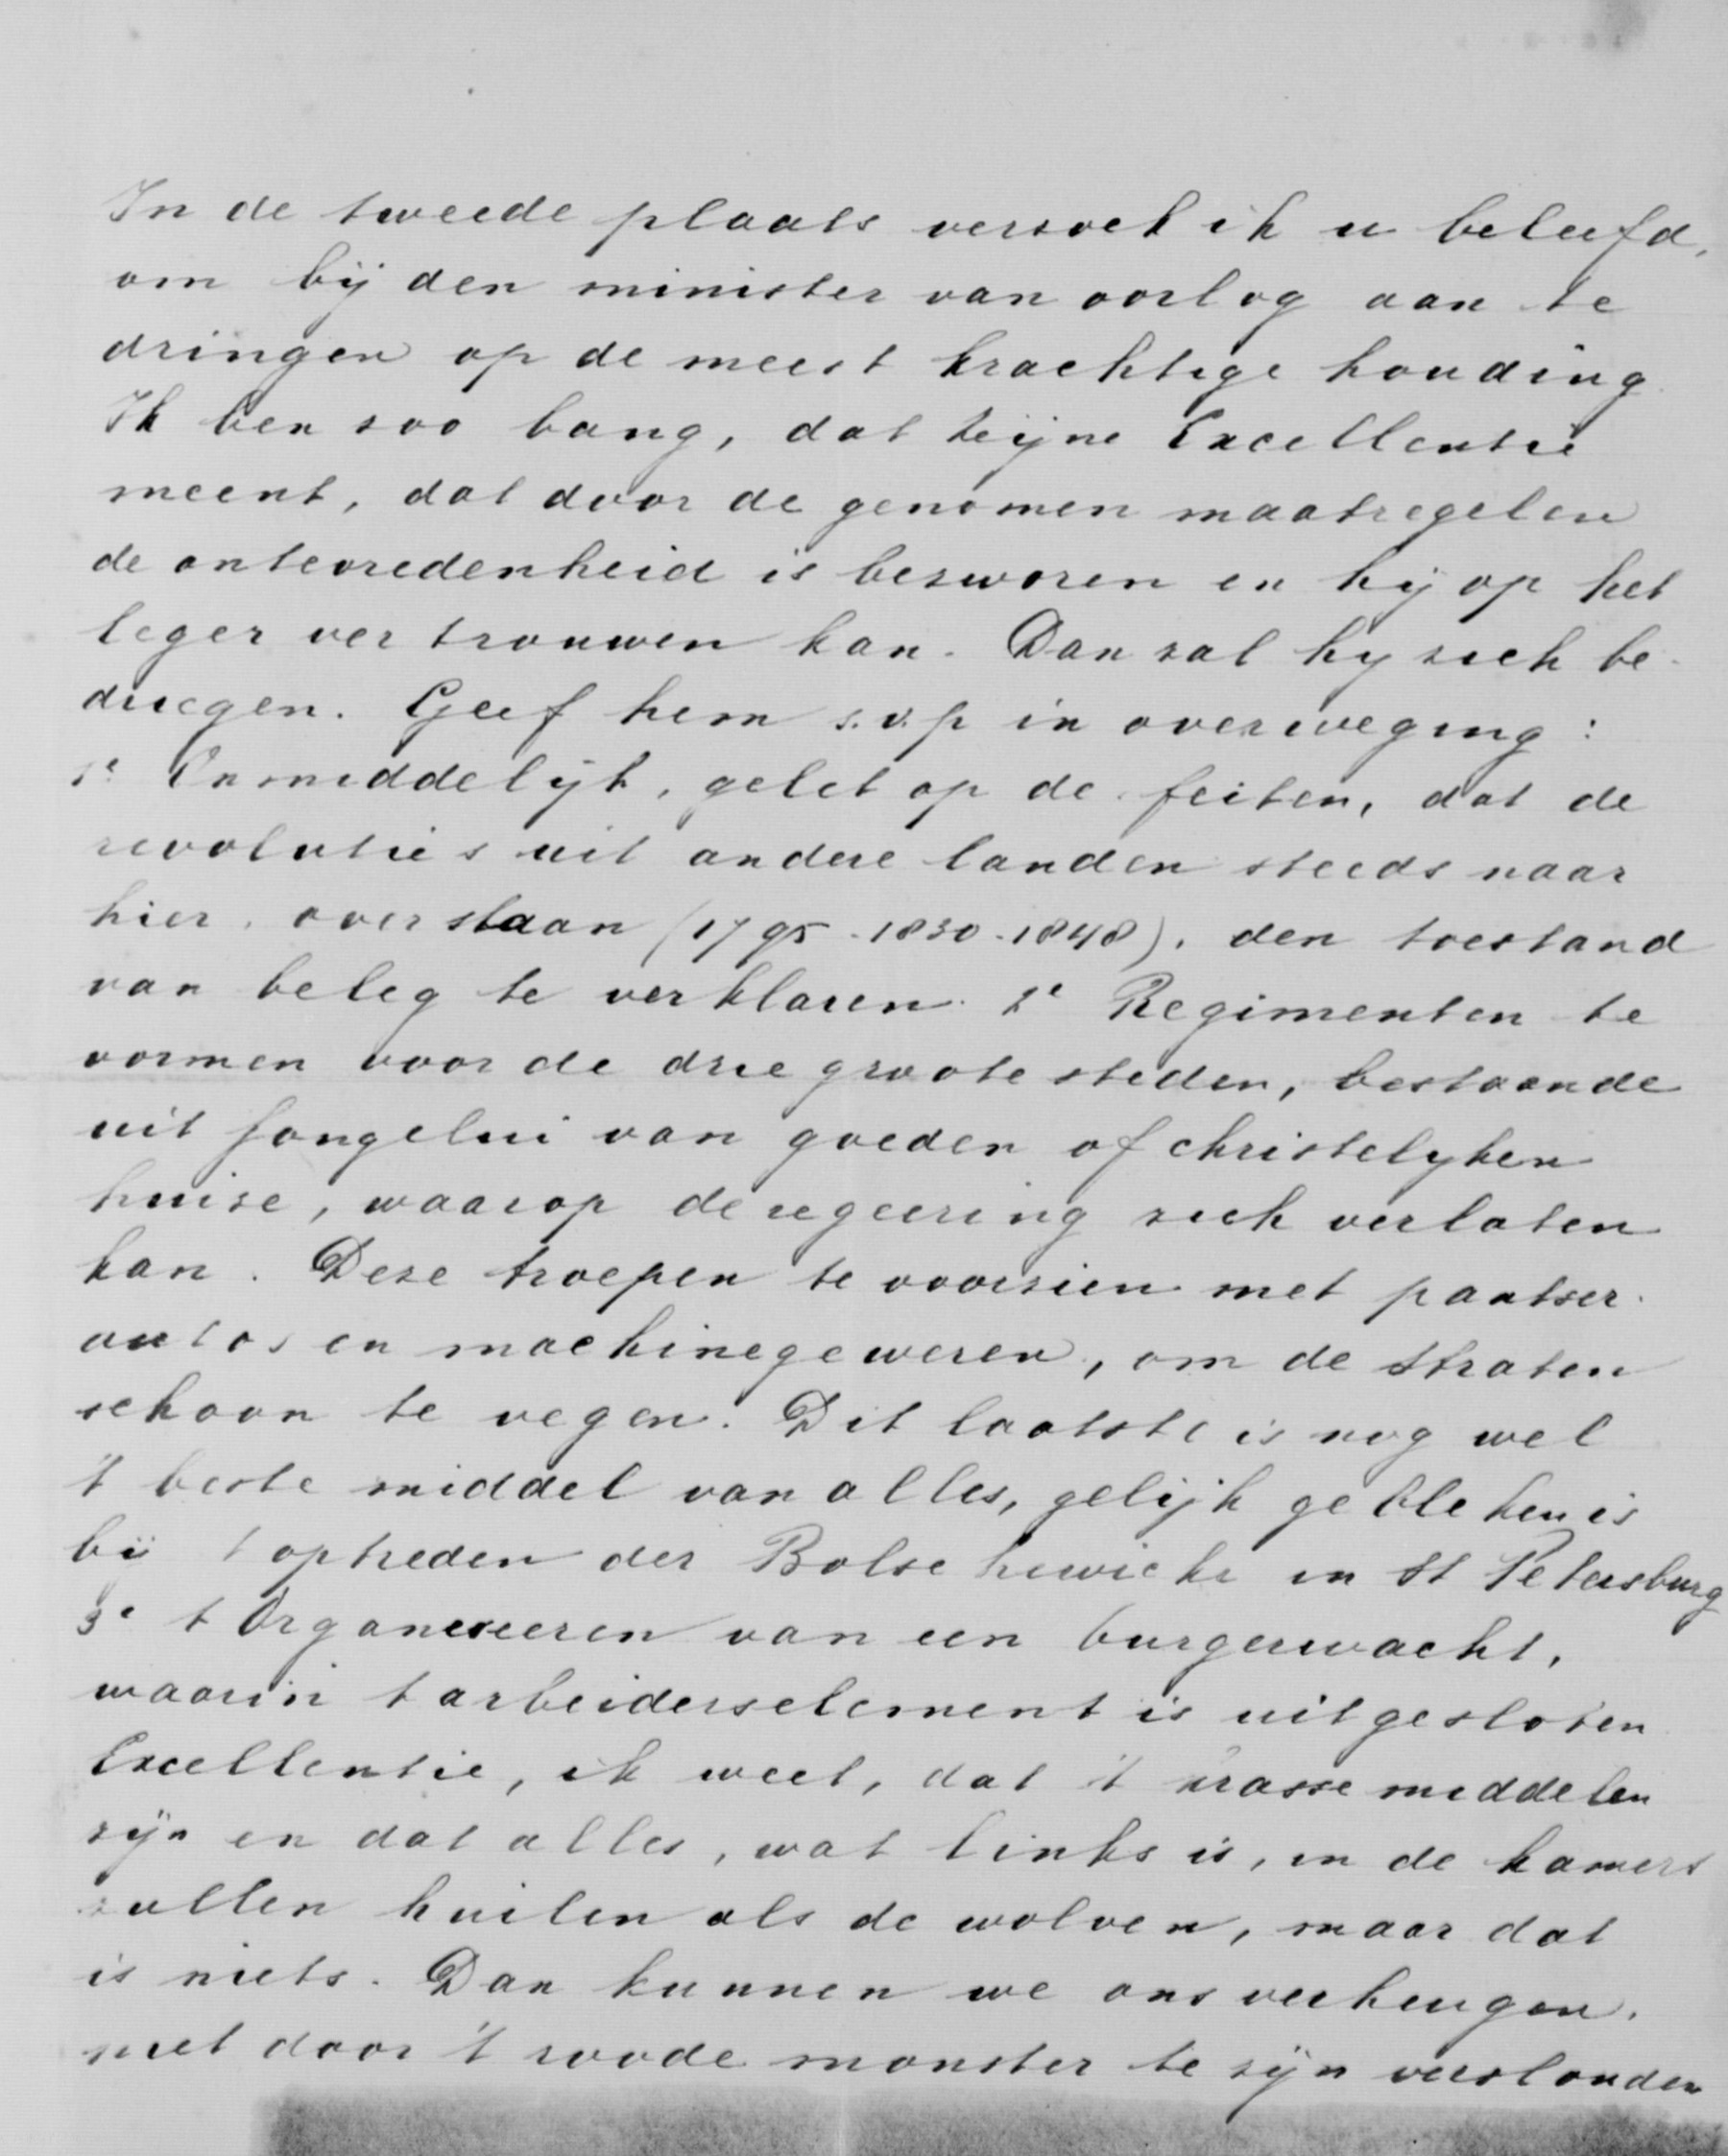 In de tweede plaats verzoek ik u beleefd,
om bij den minister van oorlog aan te
dringen op de meest krachtige houding
Ik ben zoo bang, dat Zijne Excellentie
meent, dat door de genomen maatregelen
de ontevredenheid is bezworen en hij op het
leger vertrouwen kan. Dan zal hij zich be-
driegen. Geef hem s.v.p in overweging:
1e Onmiddelijk, gelet op de feiten, dat de
revolutie's uit andere landen steeds naar
hier overslaan (1795-1830-1848), den toestand
van beleg te verklaren. 2e Regimenten te
vormen voor de drie groote steden, bestaande
uit jongelui van goeden of christelijken
huize, waarop de regeering zich verlaten
kan. Deze troepen te voorzien met pantser-
autos en machinegeweren, om de straten
schoon te vegen. Dit laatste is nog wel
't beste middel van alles, gelijk gebleken is
bij t optreden der Bolschewicki in St Petersburg
3e t Organiseeren van een burgerwacht,
waarin t arbeiderselement is uitgesloten
Excellentie, ik weet, dat 't krasse middelen
zijn en dat alles, wat links is, in de kamers
zullen huilen als de wolven, maar dat
is niets. Dan kunnen we ons verheugen,
niet door 't roode monster te zijn verslonden